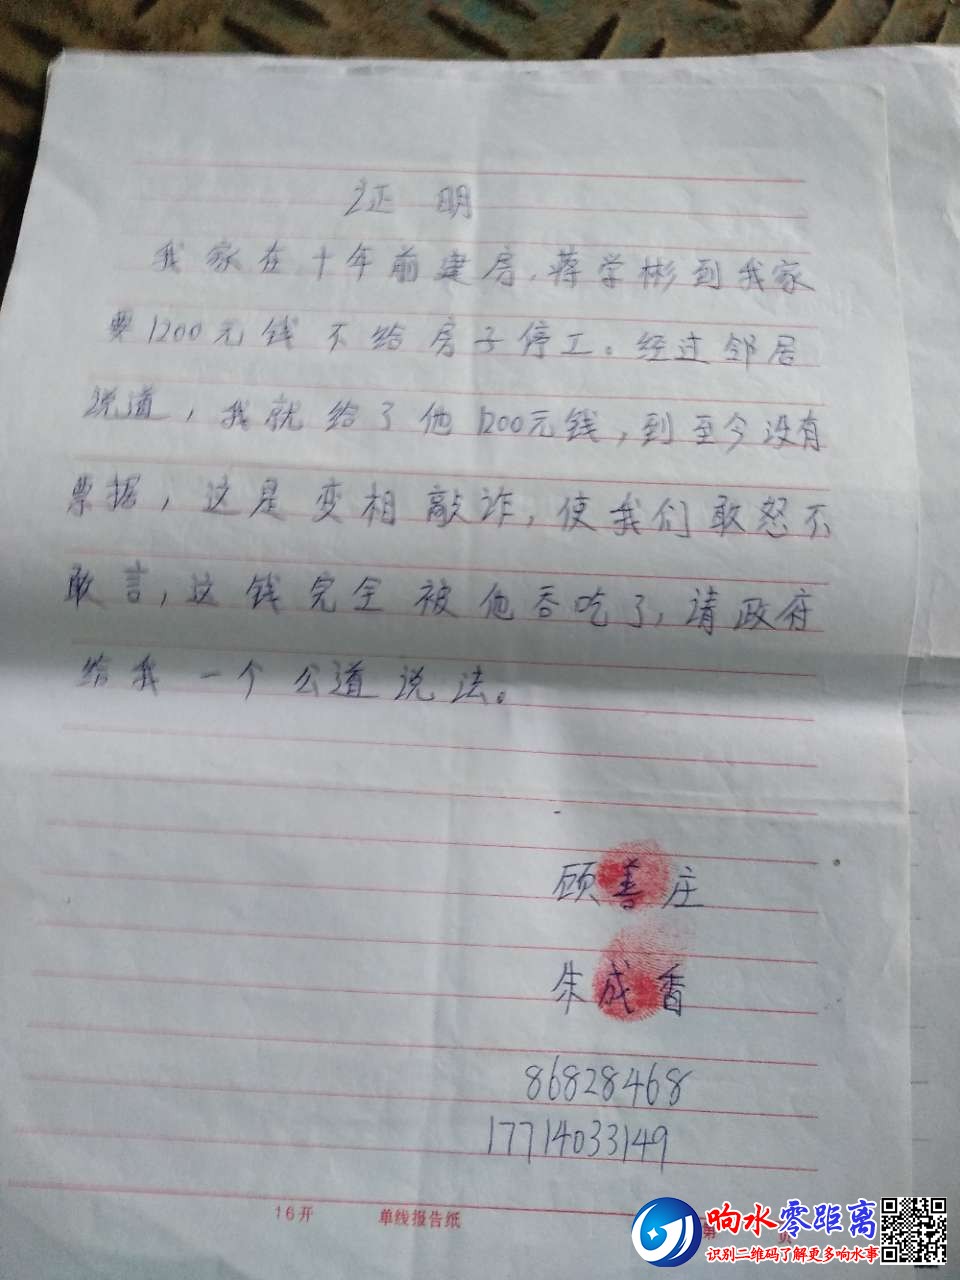 证明
我家在十年前建房,蒋学彬到我家
要1200元钱不给房子停工。经过邻居
说道,我就给了他1200元钱,到至今没有
票据,这是变相敲诈,使我们敢怒不
敢言,这钱完全被他吞吃了,请政府
给我一个公道说法。
顾善庄
朱成香
86828468
17714033149
16开 单线报告纸 第 页
响水零距离
识别二维码了解更多响水事